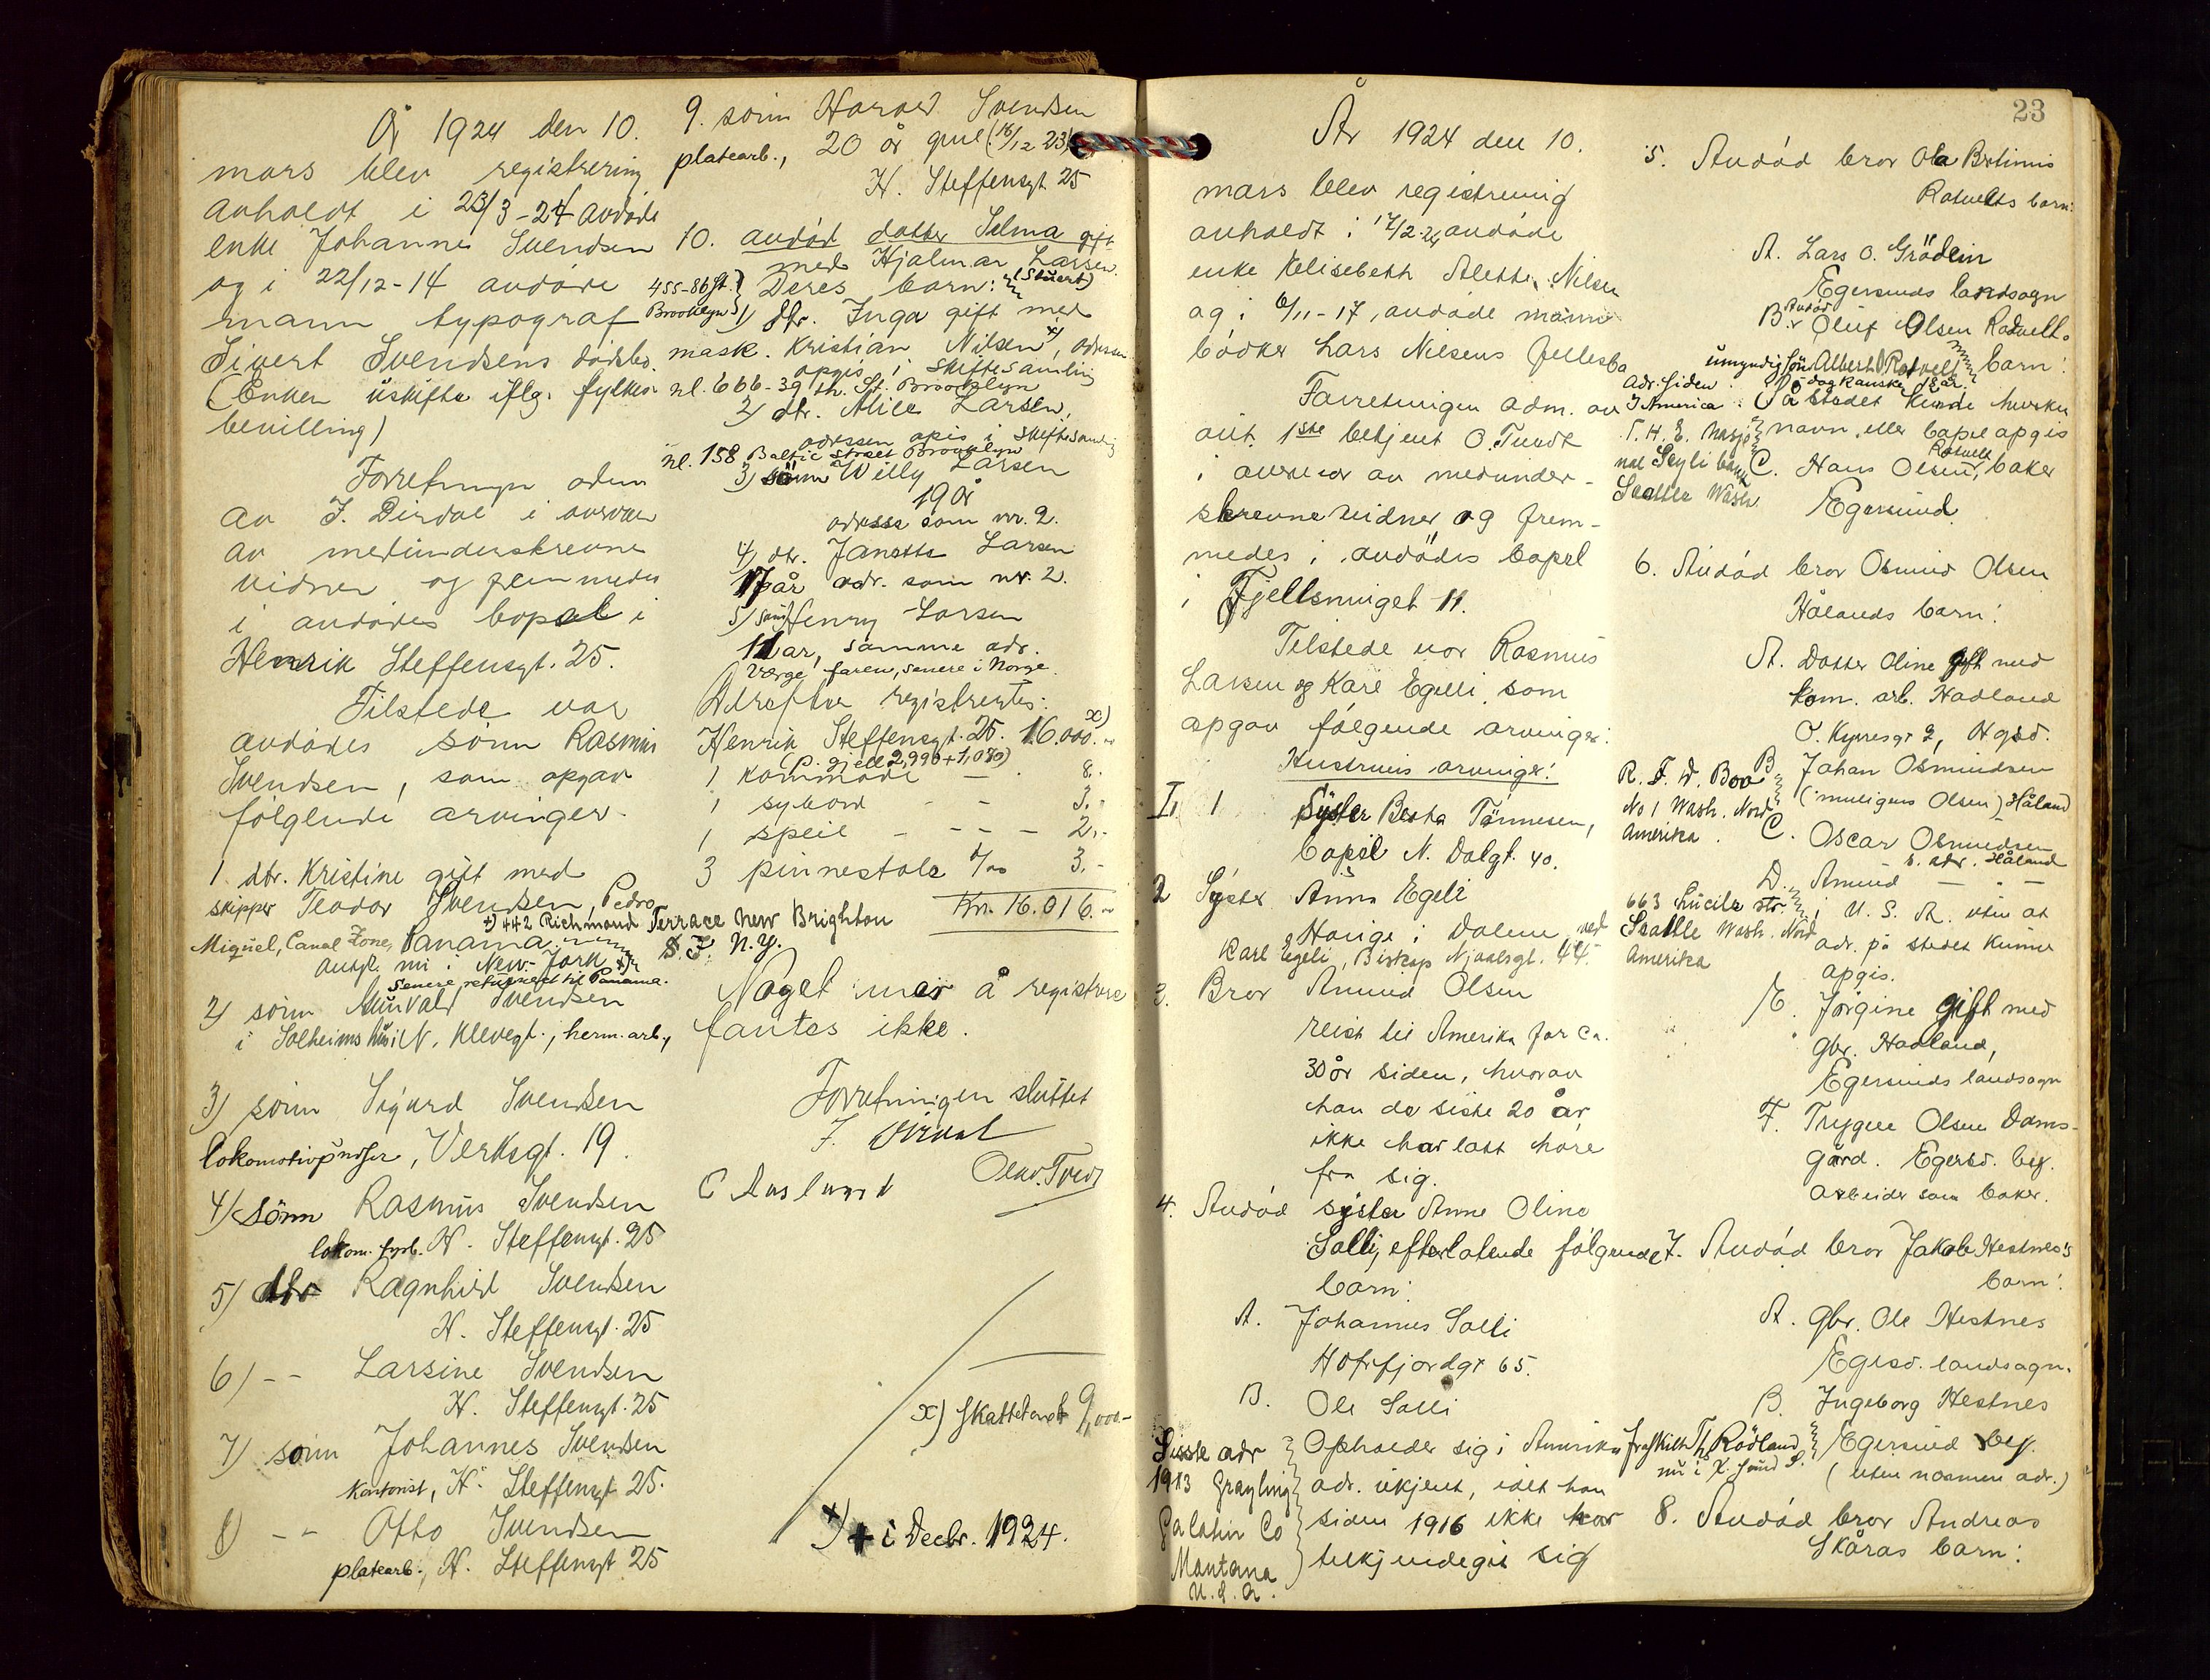 År 1924 den 10.
mars blev registrering
avholdt i 23/3-24 avdøde
enke Johanne Svendsen
og i 22/12-14 avdøde
mann typograf
Sivert Svendsens dødsbo.
(Enken uskifte iflg. fylkes
bevilling)
Forretningen adm
av J. Dirdal i nærvær
av medunderskrevne
vidner og fremmedes
i avdødes bopæl i
Henrik Steffensgt. 25.
Tilstede var
avdødes sønn Rasmus
Svendsen, som opgav
følgende arvinger.
1. dtr. Kristine gift med
skipper Teodor Svendsen, Pedro
+) 442 Richmond Terrace New Brighton
S. I. N.Y.
Miguel, Canal Zone, Panama.
nu i New-York +)
Senere returnert til Panama.
2) sønn Svendsen
i Solheims hus i N. Klevegt., herm. arb.,
3) sønn Sigurd Svendsen
lokomotivpusser, Verksgt. 19.
4) sønn Rasmus Svendsen
lokom. fyrb. H. Steffensgt. 25
5) dtr Ragnhild Svendsen
H. Steffensgt. 25
6) - - Larsine Svendsen
H. Steffensgt. 25
7) sønn Johannes Svendsen
kontorist, H. Steffensgt 25.
8) - - Otto Svendsen
platearb., H. Steffensgt 25
9. sønn Harald Svendsen
platearb., 20 år gml (16/12 23)
H. Steffensgt 25
10. avdød datter Selma gift
med Hjalmar Larsen.
(Stuert)
455-86 St. Brooklyn
Deres barn:
1) dtr. Inga gift med
mask. Kristian Nilsen x), adressen
opgis i skiftesamling
nl. 666-39 th. St. Brooklyn
2) dtr. Alice Larsen,
adressen opgis i skiftesamling
nl. 158 Baltic Street Brooklyn
3) sønn Willy Larsen
19 år
adresse som nr. 2.
4) dtr. Janette Larsen
17 år adr. som nr. 2.
5) sønn Henry Larsen
11 år, samme adr.
Værge faren, senere i Norge.
Derefter registrertes:
Henrik Steffensgt. 25. 16.000.- x)
(P. gjeld 2,990 + 1,080)
1 kommode - 8.-
1 sybord - - 3.-
1 speil - - - - 2.-
3 pinnestole 1/00 3.-
Kr. 16.016.-
Noget mer å registrere
fantes ikke.
Forretningen sluttet
J. Dirdal
C Ausland Olav. Tvedt
x) Skattetakst 9,000-
x) + i Decbr. 1924.
23
År 1924 den 10.
mars blev registrering
avholdt i 17/2-24 avdøde
enke Kelisebeth Alette Nilsen
og i 6/11-17, avdøde mann
bødker Lars Nilsens fellesbo
Forretningen adm. av
aut. 1ste betjent O. Tvedt
i nærvær av medunder-
skrevne vidner og frem-
medes i avdødes bopæl
i Fjellsmuget 11.
Tilstede var Rasmus
Larsen og Karl Egeli som
opgav følgende arvinger:
Hustruens arvinger:
I. 1 Syster Berta Tønnesen,
bopæl N. Dalgt. 40.
2 Syster Anna Egeli
Hauge i Dalene ved
Karl Egeli, Biskop Njaalsgt. 44.
3. Bror Amund Olsen
reist til Amerika for ca.
30 år siden, hvorav
han de siste 20 år
ikke har latt høre
fra sig.
4. Avdød syster Anne Oline
Salli, efterlatende følgende
barn:
A. Johannes Salli
Hafrsfjordgt 65.
B. Ole Salli
Opholder sig i Amerika
adr. ukjent, idet han
siden 1916 ikke har
tilkjendegit sig
Siste adr
1913 Grayling
Galatin Co
Montana
U.S.A.
5. Avdød bror Ola Bertinus
Rotvelts barn:
A. Lars O. Grødem
Egersunds landsogn
B. Avdød Oluf Olsen Rotvelt.
umyndig søn Albert Rotvelt barn:
dog kanske 18 år.
Adr. siden: På stedet kunde hverken
I America. navn eller bopæl opgis
Seattle Wash.
C. Hans Olsen Rotvelt, baker
Egersund
6. Avdød bror Osmund Olsen
Hålands barn:
A. Datter Oline gift med
kom. arb. Hadland
O. Kyrresgt 2, Hgsd.
R. F. D. Box
No 1 Wash. Nord
Amerika.
B. Johan Osmundsen
(muligens Olsen) Håland
C. Oscar Osmundsen
u. adr. Håland
D. Amund - " -
663 Lucile str.
Seattle Wash. Nord
Amerika
i U.S.A. uten at
adr. på stedet kunne
opgis.
E. Jørgine gift med
gbr. Hadland,
Egersunds landsogn
F. Trygve Olsen Dams-
gård. Egersd. bef.
arbeider som baker.
7. Avdød bror Jakob Hestnes's
barn:
A. gbr. Ole Hestnes
Egersd. landsogn.
B. Ingeborg Hestnes
fraskilt Th. Rødland Egersund bef.
(uten nærmere adr.)
8. Avdød bror Andreas
Skåras barn: